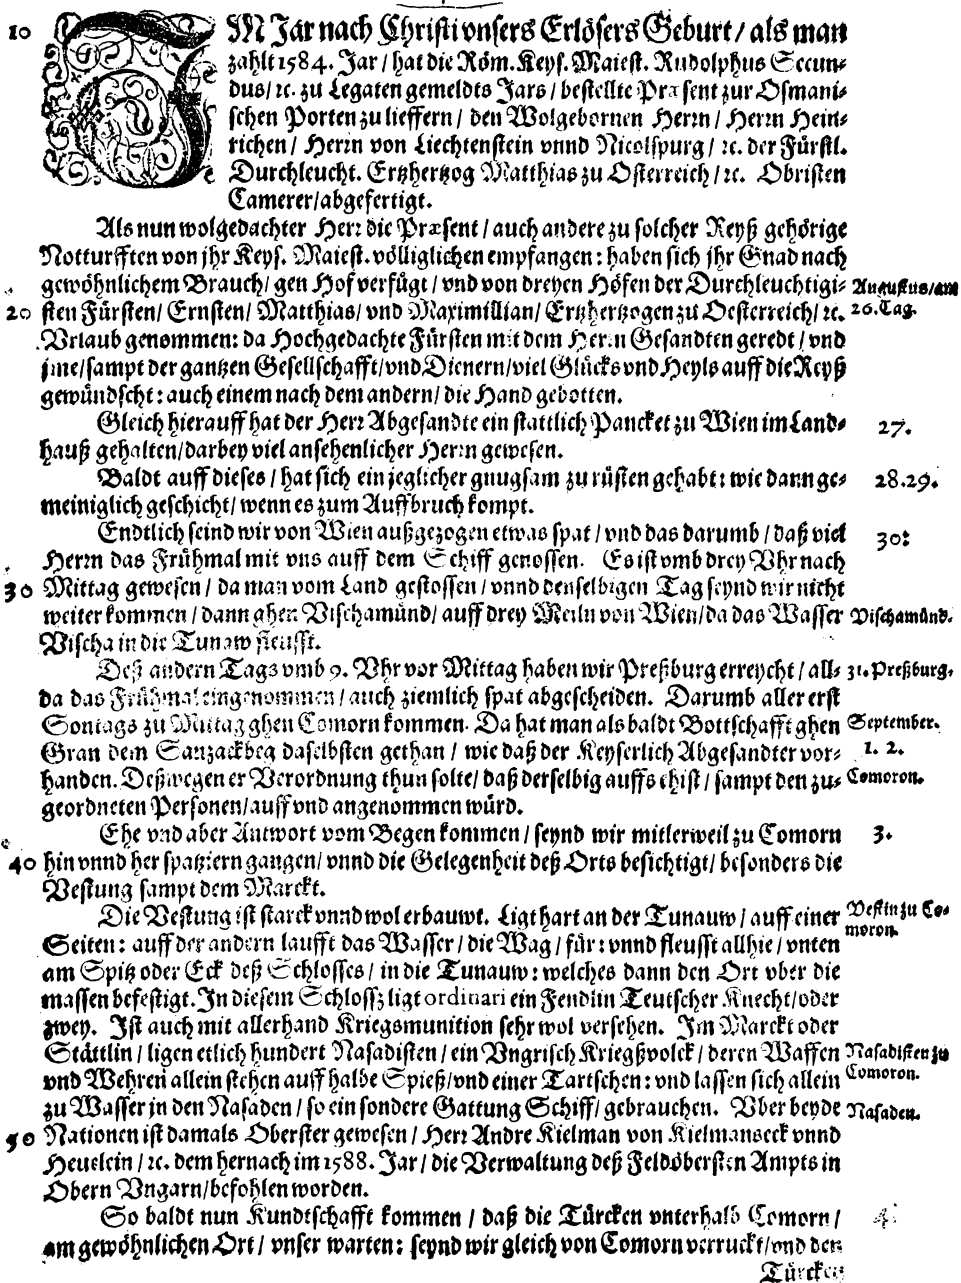 10 IM Jar nach Christi vnsers Erlösers Geburt / als man
zahlt 1584. Jar / hat die Röm. Keys. Maiest. Rudolphus Secun-
dus / ꝛc. zu Legaten gemeldts Jars / bestellte Præsent zur Osmani-
schen Porten zu lieffern / den Wolgebornen Herrn / Herrn Hein-
richen / Herrn von Liechtenstein vnnd Nicolspurg / ꝛc. der Fürstl.
Durchleucht. Ertzhertzog Matthias zu Osterreich / ꝛc. Obristen
Camerer / abgefertigt.
Als nun wolgedachter Herr die Præsent / auch andere zu solcher Reyß gehörige
Notturfften von jhr Keys. Maiest. völliglichen empfangen: haben sich jhr Gnad nach
gewöhnlichem Brauch / gen Hof verfügt / vnd von dreyen Höfen der Durchleuchtigi- Augustus / am
20 sten Fürsten / Ernsten / Matthias / vnd Maximillian / Ertzhertzogen zu Oesterreich / ꝛc. 26. Tag.
Vrlaub genommen: da Hochgedachte Fürsten mit dem Herrn Gesandten geredt / vnd
jme / sampt der gantzen Gesellschafft / vnd Dienern / viel Glücks vnd Heyls auff die Reyß
gewündscht: auch einem nach dem andern / die Hand gebotten.
Gleich hierauff hat der Herr Abgesandte ein stattlich Pancket zu Wien im Land- 27.
hauß gehalten / darbey viel ansehenlicher Herrn gewesen.
Baldt auff dieses / hat sich ein jeglicher gnugsam zu rüsten gehabt: wie dann ge- 28.29.
meiniglich geschicht / wenn es zum Auffbruch kompt.
Endtlich seind wir von Wien außgezogen etwas spat / vnd das darumb / daß viel 30:
Herrn das Frühmal mit vns auff dem Schiff genossen. Es ist vmb drey Vhr nach
30 Mittag gewesen / da man vom Land gestossen / vnnd denselbigen Tag seynd wir nicht
weiter kommen / dann ghen Vischamünd / auff drey Meiln von Wien / da das Wasser Vischamünd.
Vischa in die Tunaw fleusst.
Deß andern Tags vmb 9. Vhr vor Mittag haben wir Preßburg erreycht / all- 31. Preßburg.
da das Frühmal eingenommen / auch ziemlich spat abgescheiden. Darumb aller erst
Sontags zu Mittag ghen Comorn kommen. Da hat man als baldt Bottschafft ghen September.
Gran dem Sanzackbeg daselbsten gethan / wie daß der Keyserlich Abgesandter vor- 1. 2.
handen. Deßwegen er Verordnung thun solte / daß derselbig auffs ehist / sampt den zu- Comoron.
geordneten Personen / auff vnd angenommen würd.
Ehe vnd aber Antwort vom Begen kommen / seynd wir mitlerweil zu Comorn 3.
40 hin vnnd her spatziern gangen / vnnd die Gelegenheit deß Orts besichtigt / besonders die
Vestung sampt dem Marckt.
Die Vestung ist starck vnnd wol erbauwt. Ligt hart an der Tunauw / auff einer Vestin zu Co-
Seiten: auff der andern laufft das Wasser / die Wag / für: vnnd fleusst allhie / vnten moron.
am Spitz oder Eck deß Schlosses / in die Tunauw: welches dann den Ort vber die
massen befestigt. In diesem Schlossz ligt ordinari ein Fendlin Teutscher Knecht / oder
zwey. Ist auch mit allerhand Kriegsmunition sehr wol versehen. Im Marckt oder
Stättlin / ligen etlich hundert Nasadisten / ein Vngrisch Kriegßvolck / deren Waffen Nasadisten zu
vnd Wehren allein stehen auff halbe Spieß / vnd einer Tartschen: vnd lassen sich allein Comoron.
zu Wasser in den Nasaden / so ein sondere Gattung Schiff / gebrauchen. Vber beyde Nasaden.
50 Nationen ist damals Oberster gewesen / Herr Andre Kielman von Kielmanseck vnnd
Heuelein / ꝛc. dem hernach im 1588. Jar / die Verwaltung deß Feldöbersten Ampts in
Obern Vngarn / befohlen worden.
So baldt nun Kundtschafft kommen / daß die Türcken vnterhalb Comorn / 4.
am gewöhnlichen Ort / vnser warten: seynd wir gleich von Comorn verruckt / vnd den
Türcken